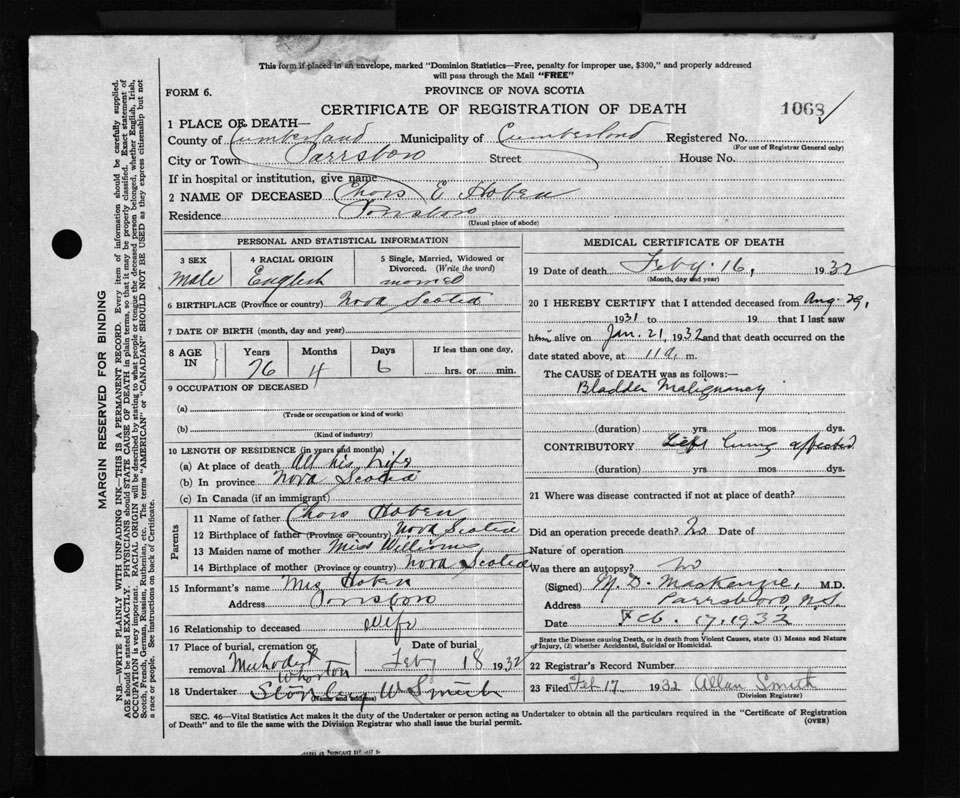 This form if placed in an envelope, marked "Dominion Statistics—Free, penalty for improper use, $300," and properly addressed
will pass through the Mail "FREE"
FORM 6.
PROVINCE OF NOVA SCOTIA
CERTIFICATE OF REGISTRATION OF DEATH
1068
1 PLACE OF DEATH—
County of Cumberland Municipality of Cumberland Registered No.
(For use of Registrar General only)
City or Town Parrsboro Street House No.
If in hospital or institution, give name
2 NAME OF DECEASED Chas E Hoben
Residence Parrsboro
(Usual place of abode)
PERSONAL AND STATISTICAL INFORMATION
3 SEX 4 RACIAL ORIGIN 5 Single, Married, Widowed or Divorced. (Write the word)
Male English married
6 BIRTHPLACE (Province or country) Nova Scotia
7 DATE OF BIRTH (month, day and year)
8 AGE IN Years Months Days If less than one day,
76 4 6 hrs. or min.
9 OCCUPATION OF DECEASED
(a)
(Trade or occupation or kind of work)
(b)
(Kind of industry)
10 LENGTH OF RESIDENCE (in years and months)
(a) At place of death All his Life
(b) In province Nova Scotia
(c) In Canada (if an immigrant)
Parents
11 Name of father Chas Hoben
12 Birthplace of father (Province or country) Nova Scotia
13 Maiden name of mother Miss Williams
14 Birthplace of mother (Province or country) Nova Scotia
15 Informant's name Mrs Hoben
Address Parrsboro
16 Relationship to deceased Wife
17 Place of burial, cremation or removal Methodist Date of burial
Wharton Feby 18 1932
18 Undertaker Stanley W Smith
(Name and address)
MEDICAL CERTIFICATE OF DEATH
19 Date of death Feby. 16, 1932
(Month, day and year)
20 I HEREBY CERTIFY that I attended deceased from Aug. 29,
1931 to 19 that I last saw
him alive on Jan. 21, 1932 and that death occurred on the
date stated above, at 11 a. m.
The CAUSE of DEATH was as follows:—
Bladder Malignancy
(duration) yrs mos dys.
CONTRIBUTORY Left lung affected
(duration) yrs. mos dys.
21 Where was disease contracted if not at place of death?
Did an operation precede death? No Date of
Nature of operation
Was there an autopsy? No
(Signed) M. D. MacKenzie, M.D.
Address Parrsboro, N.S.
Date Feb. 17, 1932
State the Disease causing Death, or in death from Violent Causes, state (1) Means and Nature of Injury, (2) whether Accidental, Suicidal or Homicidal.
22 Registrar's Record Number
23 Filed Feb 17 1932 Allan Smith
(Division Registrar)
SEC. 46—Vital Statistics Act makes it the duty of the Undertaker or person acting as Undertaker to obtain all the particulars required in the "Certificate of Registration
of Death" and to file the same with the Division Registrar who shall issue the burial permit.
(OVER)
MARGIN RESERVED FOR BINDING
N.B.—WRITE PLAINLY WITH UNFADING INK—THIS IS A PERMANENT RECORD. Every item of information should be carefully supplied.
AGE should be stated EXACTLY. PHYSICIANS should STATE CAUSE OF DEATH in plain terms, so that it may be properly classified. Exact statement of
OCCUPATION is very important. RACIAL ORIGIN will be described by stating to what people or tongue the deceased person belonged, whether English, Irish,
Scotch, French, German, Russian, Ruthenian, etc. The terms "AMERICAN" or "CANADIAN" SHOULD NOT BE USED as they express citizenship but not
a race or people. See instructions on back of Certificate.